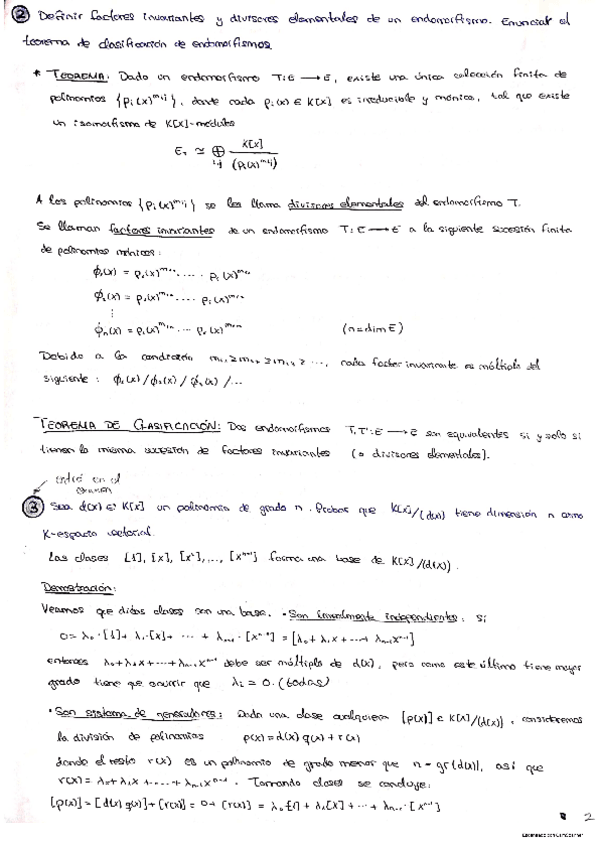 ② Definir factores invariantes y divisores elementales de un endomorfismo. Enunciar el
teorema de clasificación de endomorfismos.
* TEOREMA: Dado un endomorfismo T: E → E, existe una única colección finita de
polinomios {pᵢ(x)^mᵢⱼ}, donde cada pᵢ(x) ∈ K[x] es irreducible y mónico, tal que existe
un isomorfismo de K[x]-módulos
E_T ≃ ⊕_{i,j} K[x] / (pᵢ(x)^mᵢⱼ)
A los polinomios {pᵢ(x)^mᵢⱼ} se les llama divisores elementales del endomorfismo T.
Se llaman factores invariantes de un endomorfismo T: E → E a la siguiente sucesión finita
de polinomios mónicos:
ϕ₁(x) =
ϕ₂(x) =
⋮
ϕₙ(x) = (n = dim E)
Debido a la condición cada factor invariante es múltiplo del
siguiente: ϕ₁(x) / ϕ₂(x) / ϕ₃(x) / ...
TEOREMA DE CLASIFICACIÓN: Dos endomorfismos T, T': E → E son equivalentes si y solo si
tienen la misma sucesión de factores invariantes (o divisores elementales).
entró en el
examen
③ Sea d(x) ∈ K[x] un polinomio de grado n. Probar que K[x]/(d(x)) tiene dimensión n como
K-espacio vectorial.
Las clases [1], [x], [x²], ..., [xⁿ⁻¹] forma una base de K[x]/(d(x)).
Demostración:
Veamos que dichas clases son una base. · Son linealmente independientes: si
0 = λ₀·[1] + λ₁·[x] + ... + λₙ₋₁·[xⁿ⁻¹] = [λ₀ + λ₁x + ... + λₙ₋₁xⁿ⁻¹]
entonces λ₀ + λ₁x + ... + λₙ₋₁xⁿ⁻¹ debe ser múltiplo de d(x), pero como este último tiene mayor
grado tiene que ocurrir que λᵢ = 0. (todas)
· Son sistema de generadores: Dada una clase cualquiera [p(x)] ∈ K[x]/(d(x)), consideremos
la división de polinomios p(x) = d(x) q(x) + r(x)
donde el resto r(x) es un polinomio de grado menor que n = gr(d(x)), así que
r(x) = λ₀ + λ₁x + ... + λₙ₋₁xⁿ⁻¹. Tomando clases se concluye:
[p(x)] = [d(x) q(x)] + [r(x)] = 0 + [r(x)] = λ₀·[1] + λ₁[x] + ... + λₙ₋₁·[xⁿ⁻¹]
2